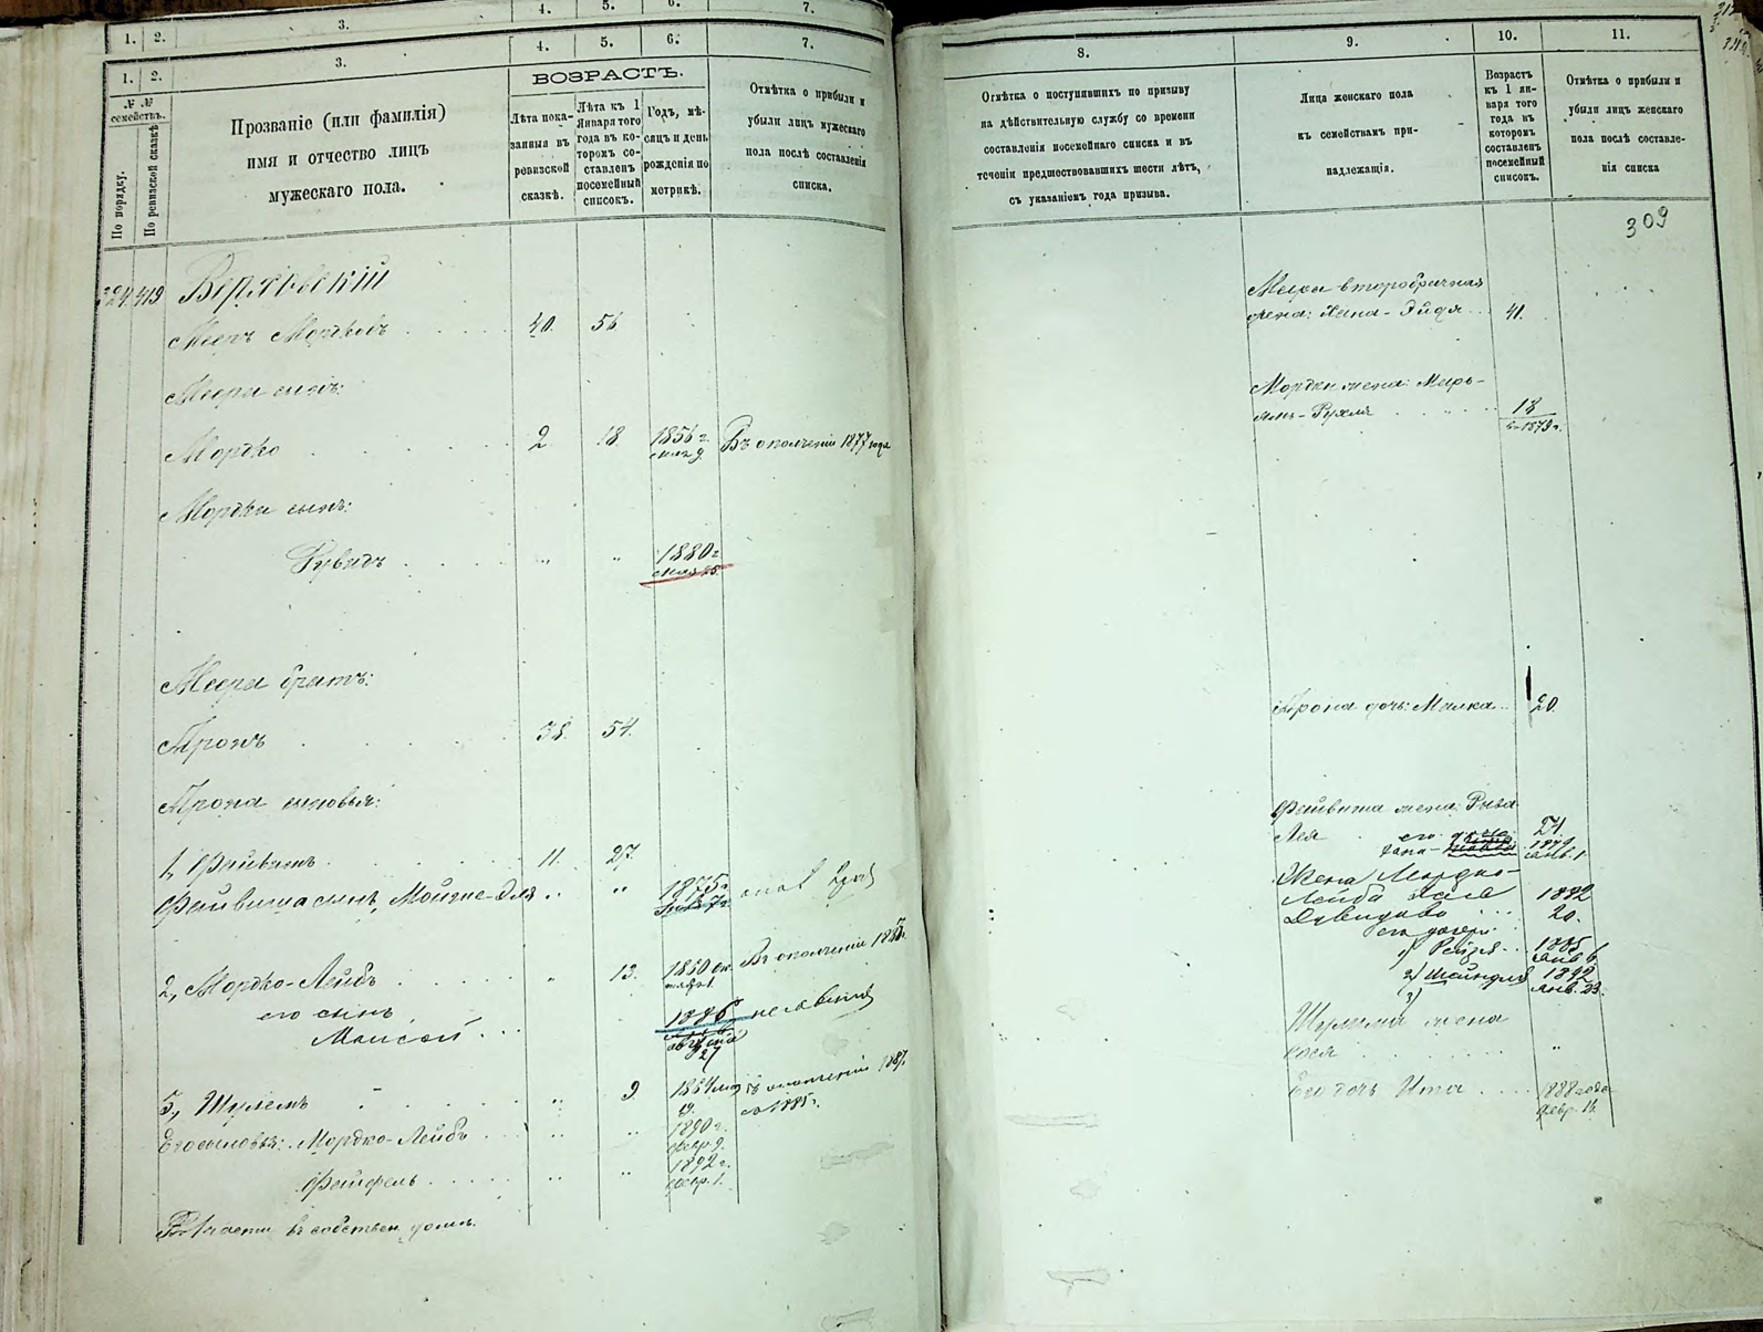 1. 2. 3. 4. 5. 6. 7.
1. 2. 3. 4. 5. 6. 7.
№ № семействъ.
По порядку.
По ревизской сказкѣ
Прозваніе (или фамилія)
имя и отчество лицъ
мужескаго пола.
ВОЗРАСТЪ.
Лѣта пока-
занныя въ
ревизской
сказкѣ.
Лѣта къ 1
Января того
года въ ко-
торомъ со-
ставленъ
посемейный
списокъ.
Годъ, мѣ-
сяцъ и день
рожденія по
метрикѣ.
Отмѣтка о прибыли и
убыли лицъ мужескаго
пола послѣ составленія
списка.
324 419
Мееръ Мордковъ 40. 56
Меера сынъ:
Мордко 2 18 1856 г. Въ ополченіи 1877 года
Мордки сынъ:
Рувидъ 1880 г.
Меера братъ:
Аронъ 38. 54.
Арона сыновья:
1, Файвишъ 11. 27.
Файвиша сынъ, 1875 г.
2, Мордко-Лейбъ 13. 1860 Въ ополченіи
его сынъ
Моисей 1886
августа
27
Шулемъ 9 1864
19. 1885 г.
Его сыновья: Мордко-Лейбъ 1890 г.
февр. 9.
Файфель 1892 г.
февр. 1.
въ собствен. домѣ.
8. 9. 10. 11.
Отмѣтка о поступившихъ по призыву
на дѣйствительную службу со времени
составленія посемейнаго списка и въ
теченіи предшествовавшихъ шести лѣтъ,
съ указаніемъ года призыва.
Лица женскаго пола
къ семействамъ при-
надлежащія.
Возрастъ
къ 1 ян-
варя того
года въ
которомъ
составленъ
посемейный
списокъ.
Отмѣтка о прибыли и
убыли лицъ женскаго
пола послѣ составле-
нія списка
309
Меера второбрачная
жена: Хана-Эйдя 41.
Мордки жена: Мирь-
ямъ-Рухля 18
1879 г.
Арона дочь: Малка 20
Файвиша жена: Рыва
Лея 24.
его
Хана- 1879
янв. 1
Жена Мордко-
Лейба 1882
Давидова 20.
его дочери:
1) Рейзля 1885
янв 6
2) Шейндля 1892
янв. 23.
3)
Шулима жена
Хася
Его дочь Ита 1888 года
февр. 16.